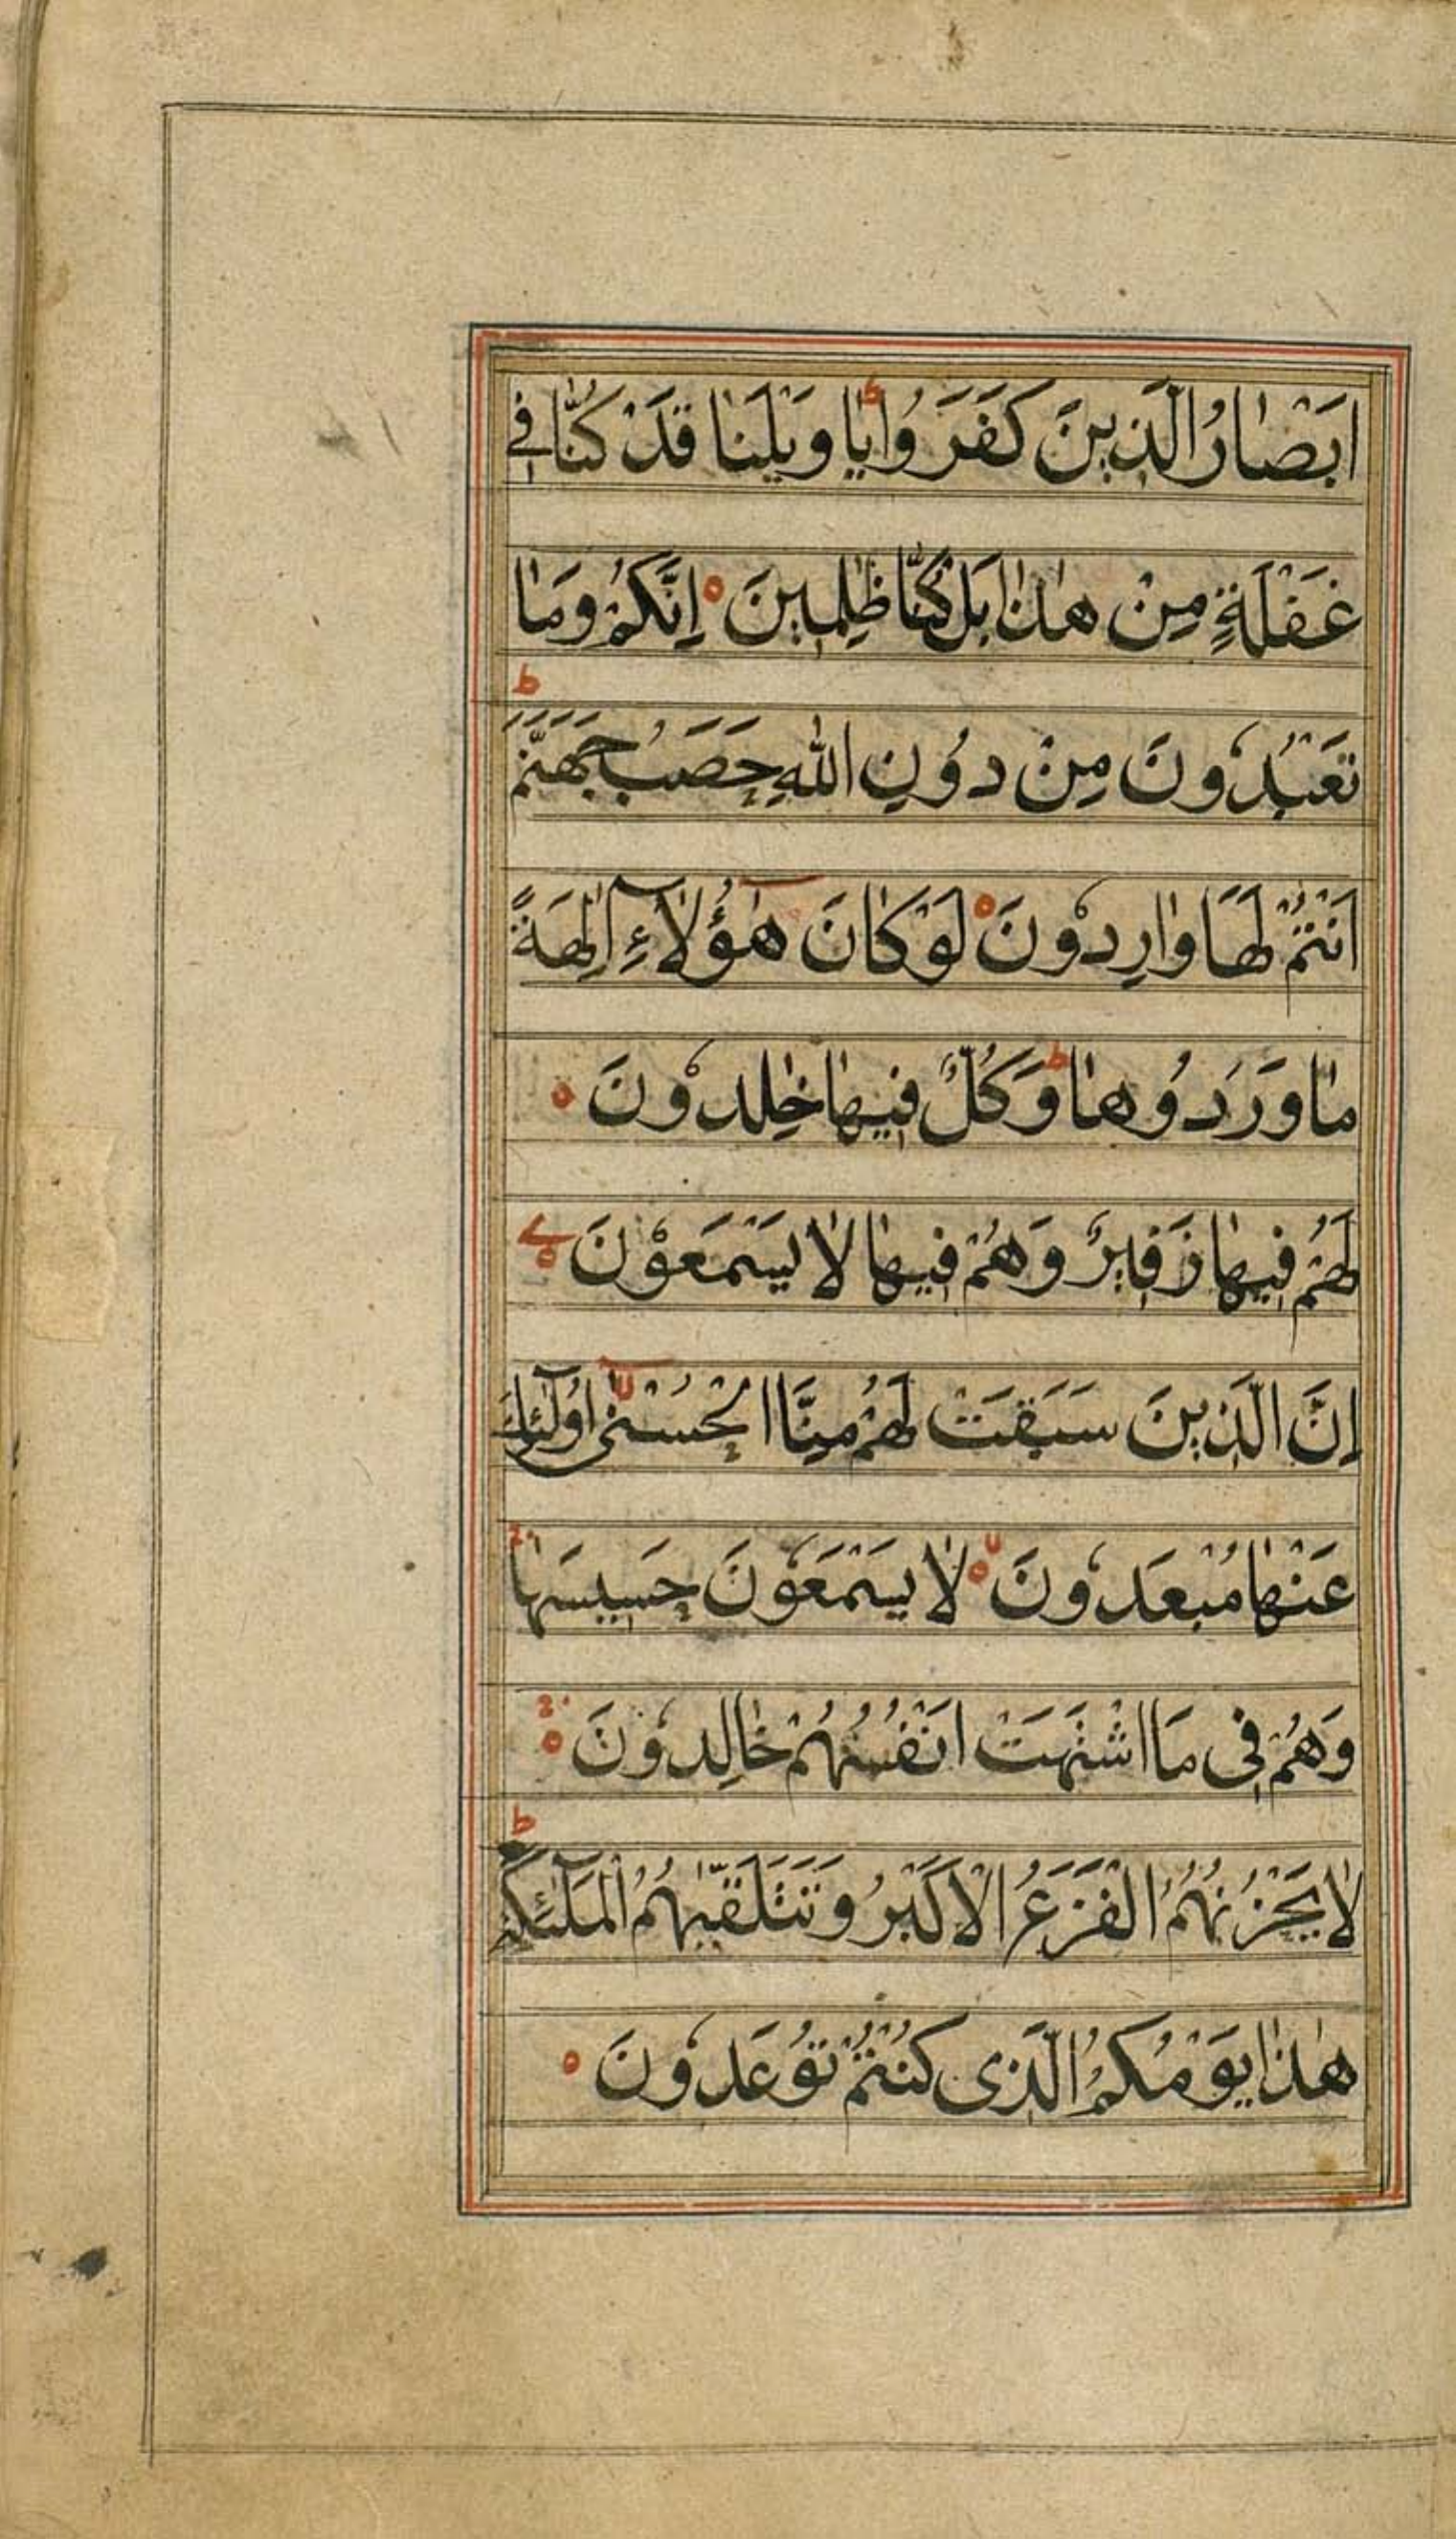 اَبْصَارُ الَّذِينَ كَفَرُوا يَا وَيْلَنَا قَدْ كُنَّا فِي
غَفْلَةٍ مِنْ هٰذَا بَلْ كُنَّا ظٰلِمِينَ ه اِنَّكُمْ وَمَا
تَعْبُدُونَ مِنْ دُونِ اللّٰهِ حَصَبُ جَهَنَّمَ ط
اَنْتُمْ لَهَا وَارِدُونَ ه لَوْ كَانَ هٰؤُلَآءِ اٰلِهَةً
مَا وَرَدُوهَا ط وَكُلٌّ فِيهَا خٰلِدُونَ ه
لَهُمْ فِيهَا زَفِيرٌ وَهُمْ فِيهَا لَا يَسْمَعُوْنَ ه
اِنَّ الَّذِينَ سَبَقَتْ لَهُمْ مِنَّا الْحُسْنٰى لا اُولٰٓئِكَ
عَنْهَا مُبْعَدُونَ ه لا لَا يَسْمَعُوْنَ حَسِيسَهَا ج
وَهُمْ فِى مَا اشْتَهَتْ اَنْفُسُهُمْ خَالِدُونَ ه ج
لَا يَحْزُنُهُمُ الْفَزَعُ الْاَكْبَرُ وَتَتَلَقّٰيهُمُ الْمَلٰٓئِكَةُ ط
هٰذَا يَوْمُكُمُ الَّذِى كُنْتُمْ تُوعَدُونَ ه